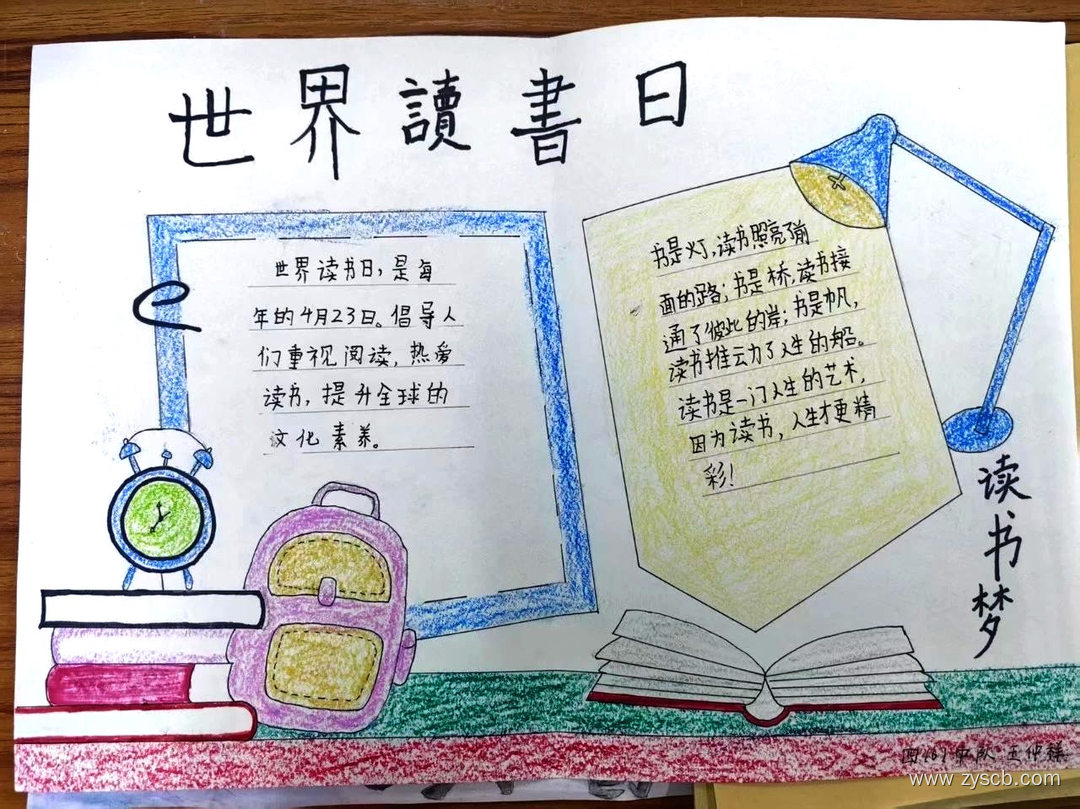 世界讀書日
世界读书日,是每
年的4月23日。倡导人
们重视阅读,热爱
读书,提升全球的
文化素养。
书是灯,读书照亮了前
面的路;书是桥,读书接
通了彼此的岸;书是帆,
读书推动了人生的船。
读书是一门人生的艺术,
因为读书,人生才更精
彩!
读书梦
四(6)中队 王仲
www.zyscb.com